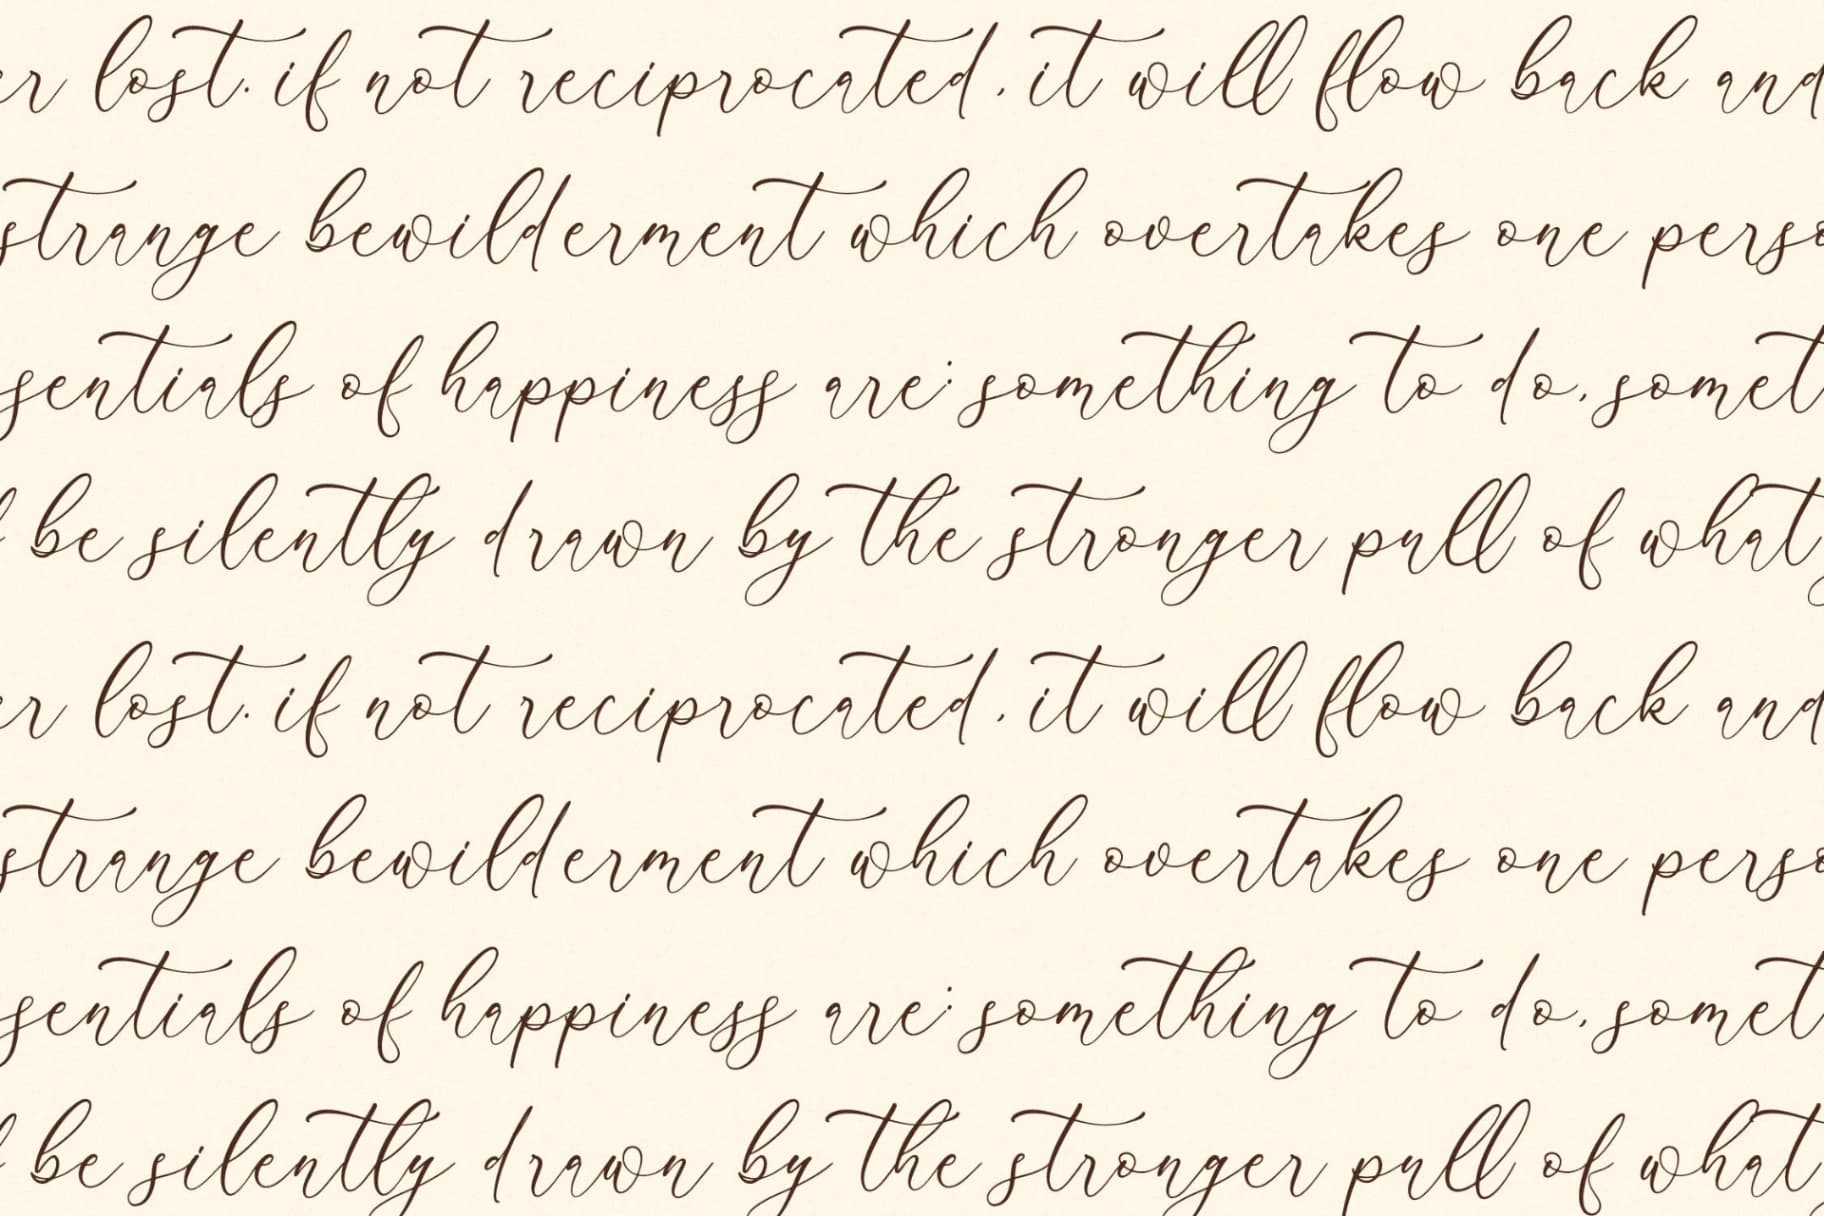 er lost. if not reciprocated, it will flow back and
strange bewilderment which overtakes one perso
sentials of happiness are: something to do, somet
be silently drawn by the stronger pull of what
er lost. if not reciprocated, it will flow back and
strange bewilderment which overtakes one perso
sentials of happiness are: something to do, somet
be silently drawn by the stronger pull of what